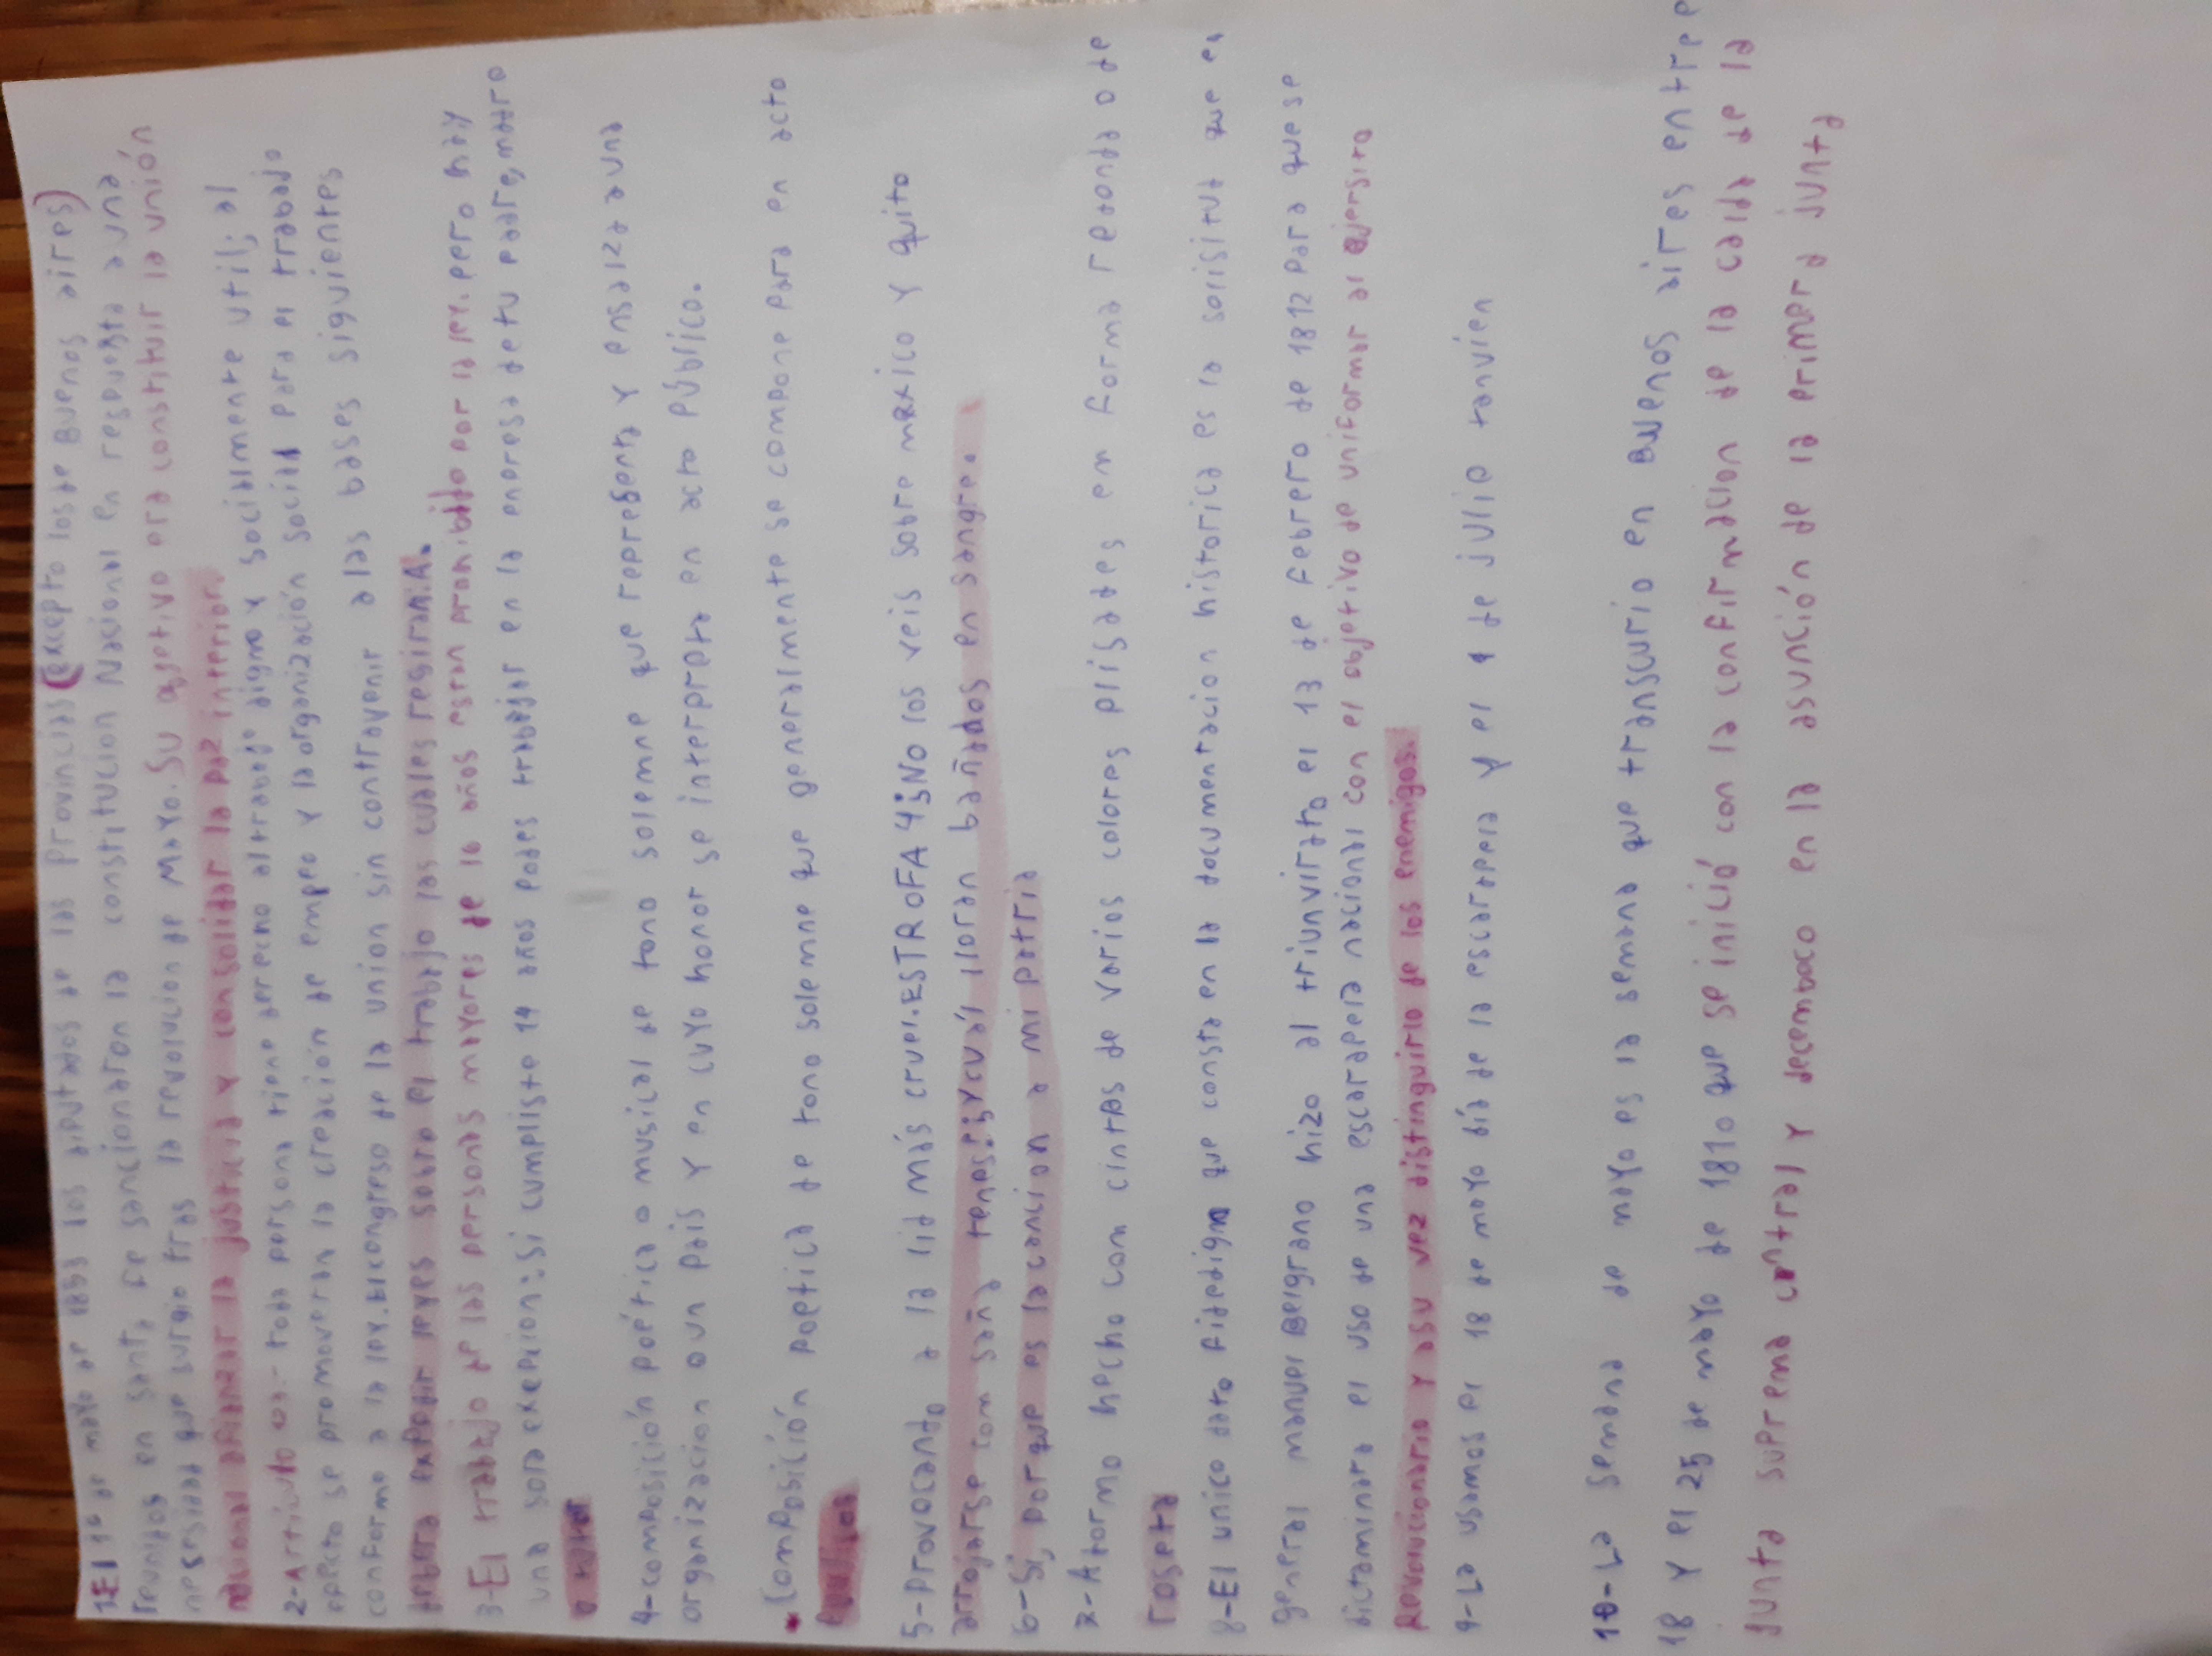 1-El 1º de mayo de 1853 los diputados de las Provincias (excepto los de Buenos aires)
reunidos en santa fe sancionaron la constitucion Nasional en respuesta a una
nesesidad que surgio tras la revolucion de Mayo. Su ogetivo era constituir la unión
nacional afianzar la justicia y consolidar la paz interior.
2-Artículo toda persona tiene derecho al trabajo digno y socialmente util; al
efecto se promoveran la creación de empeo y la organización social para el trabajo
conforme a la ley. El congreso de la union sin contravenir a las bases siguientes
debera expedir leyes sobre el trabajo las cuales regiran: A.
3-El trabajo de las personas mayores de 16 años estan pronibido por la ley. pero hay
una sora exepcion: Si cumpliste 14 años podes trabajar en la enpresa de tu padre, madre
o tutor
4-composición poética o musical de tono solemne que representa y ensalza a una
organizacion o un país y en cuyo honor se interpreta en acto público.
• Composición poetica de tono solemne que generalmente se compone para en acto
publicos
5-Provocando a la lid más cruel. ESTROFA 4¿No los veis sobre mexico y quito
arrojarse com saña tenaz? ¿Y cuál lloran bañados en sangre.
6-Si, porque es la cancion a mi patria
7-Atormo hecho com cintas de varios colores plisades en forma redonda o de
roseta
8-El unico dato fidedigno que consta en la documentacion historica es la solisitud que en
general manuel Belgrano hizo al triunvirato el 13 de febrero de 1812 para que se
dictaminara el uso de una escarapela nacional con el objetivo de uniformar al ejersito
Revolucionario y asu vez distinguirlo de los enemigos.
9-La usamos el 18 de mayo día de la escarapela y el 9 de julio tanvien
10-La semana de mayo es la semana que transcurio en Buenos aires entre e
18 y el 25 de mayo de 1810 que se inició con la confirmacion de la caida de la
junta suprema central y decemboco en la asunción de la primera junta